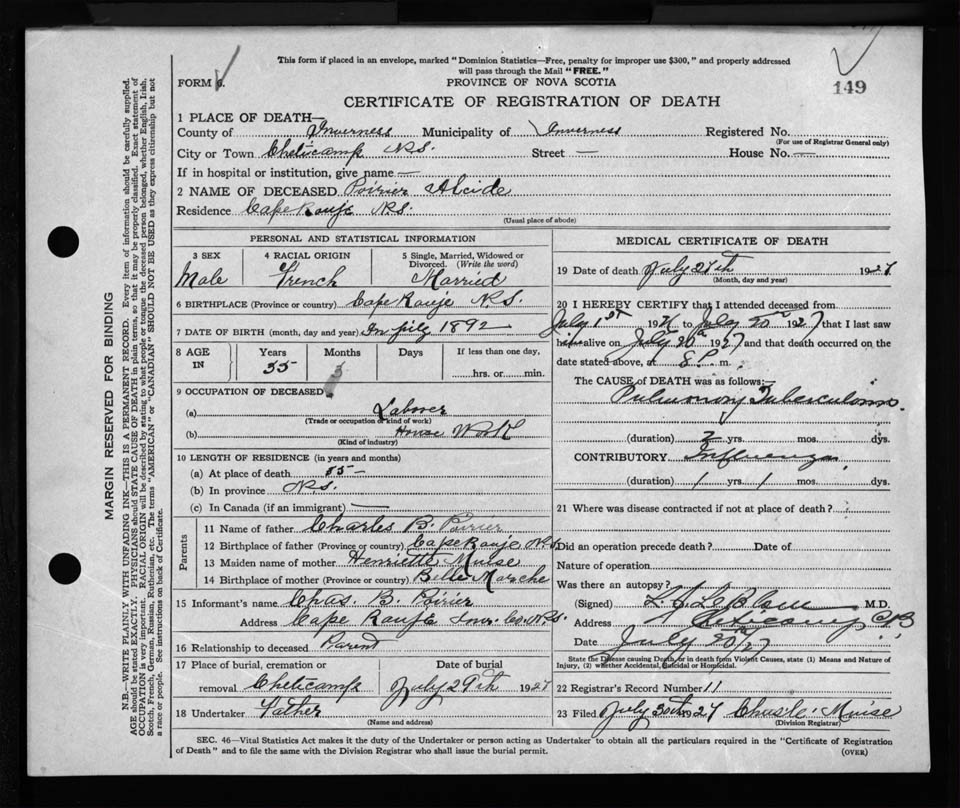 This form if placed in an envelope, marked "Dominion Statistics—Free, penalty for improper use $300," and properly addressed
will pass through the Mail "FREE."
FORM 6.
PROVINCE OF NOVA SCOTIA
149
CERTIFICATE OF REGISTRATION OF DEATH
1 PLACE OF DEATH—
County of Inverness Municipality of Inverness Registered No.
(For use of Registrar General only)
City or Town Cheticamp N.S. Street — House No. —
If in hospital or institution, give name —
2 NAME OF DECEASED Poirier Alcide
Residence Cape Rouje N.S.
(Usual place of abode)
PERSONAL AND STATISTICAL INFORMATION
3 SEX 4 RACIAL ORIGIN 5 Single, Married, Widowed or
Divorced. (Write the word)
Male French Married
6 BIRTHPLACE (Province or country) Cape Rouje N.S.
7 DATE OF BIRTH (month, day and year) 1892
8 AGE IN Years Months Days If less than one day,
35 hrs. or min.
9 OCCUPATION OF DECEASED
(a) Laborer
(Trade or occupation or kind of work)
(b) House Work
(Kind of industry)
10 LENGTH OF RESIDENCE (in years and months)
(a) At place of death 35 —
(b) In province N.S.
(c) In Canada (if an immigrant) —
Parents
11 Name of father Charles B. Poirier
12 Birthplace of father (Province or country) Cape Rouje N.S.
13 Maiden name of mother Henriette Muise
14 Birthplace of mother (Province or country) Belle Marche
15 Informant's name Chas. B. Poirier
Address Cape Rouje Inv. Co. N.S.
16 Relationship to deceased Parent
17 Place of burial, cremation or Date of burial
removal Cheticamp July 29th 1927
18 Undertaker Father
(Name and address)
MEDICAL CERTIFICATE OF DEATH
19 Date of death July 27th 1927
(Month, day and year)
20 I HEREBY CERTIFY that I attended deceased from
July 1st 192 to July 20 1927 that I last saw
h alive on July 20 1927 and that death occurred on the
date stated above, at 8 P. m.
The CAUSE OF DEATH was as follows:—
Pulmonary Tuberculosis.
(duration) 2 yrs. mos. dys.
CONTRIBUTORY Influenza
(duration) 1 yrs. 1 mos. dys.
21 Where was disease contracted if not at place of death?
Did an operation precede death? Date of
Nature of operation
Was there an autopsy?
(Signed) L. J. LeBlanc M.D.
Address Cheticamp C.B.
Date July 27
State the Disease causing Death, or in death from Violent Causes, state (1) Means and Nature of
Injury, (2) whether Accidental, Suicidal or Homicidal.
22 Registrar's Record Number 11
23 Filed July 30th 27 Muise
(Division Registrar)
SEC. 46—Vital Statistics Act makes it the duty of the Undertaker or person acting as Undertaker to obtain all the particulars required in the "Certificate of Registration
of Death" and to file the same with the Division Registrar who shall issue the burial permit.
(OVER)
MARGIN RESERVED FOR BINDING
N.B.—WRITE PLAINLY WITH UNFADING INK—THIS IS A PERMANENT RECORD. Every item of information should be carefully supplied.
AGE should be stated EXACTLY. PHYSICIANS should STATE CAUSE OF DEATH in plain terms, so that it may be properly classified. Exact statement of
OCCUPATION is very important. RACIAL ORIGIN will be described by stating to what people or tongue the deceased person belonged, whether English, Irish,
Scotch, French, German, Russian, Ruthenian, etc. The terms "AMERICAN" or "CANADIAN" SHOULD NOT BE USED as they express citizenship but not
a race or people. See instructions on back of Certificate.